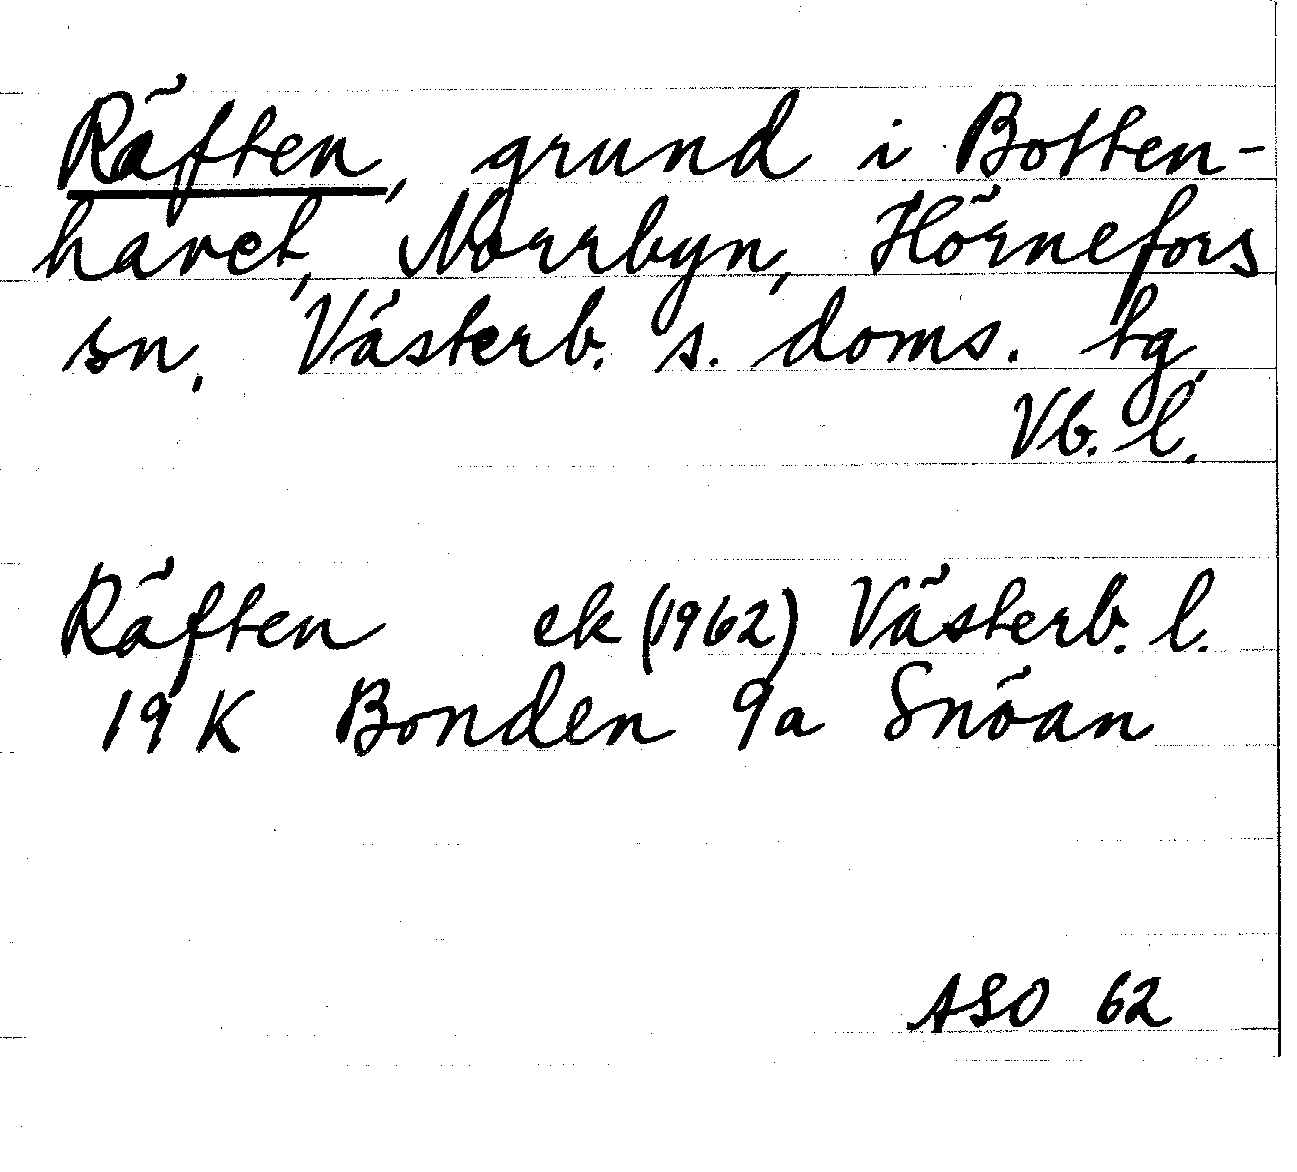 Räften, grund i Botten-
havet, Norrbyn, Hörnefors
sn, Västerb. s. doms. tg,
Vb. l.
Räften ek (1962) Västerb. l.
19 K Bonden 9a Snöan
ASO 62